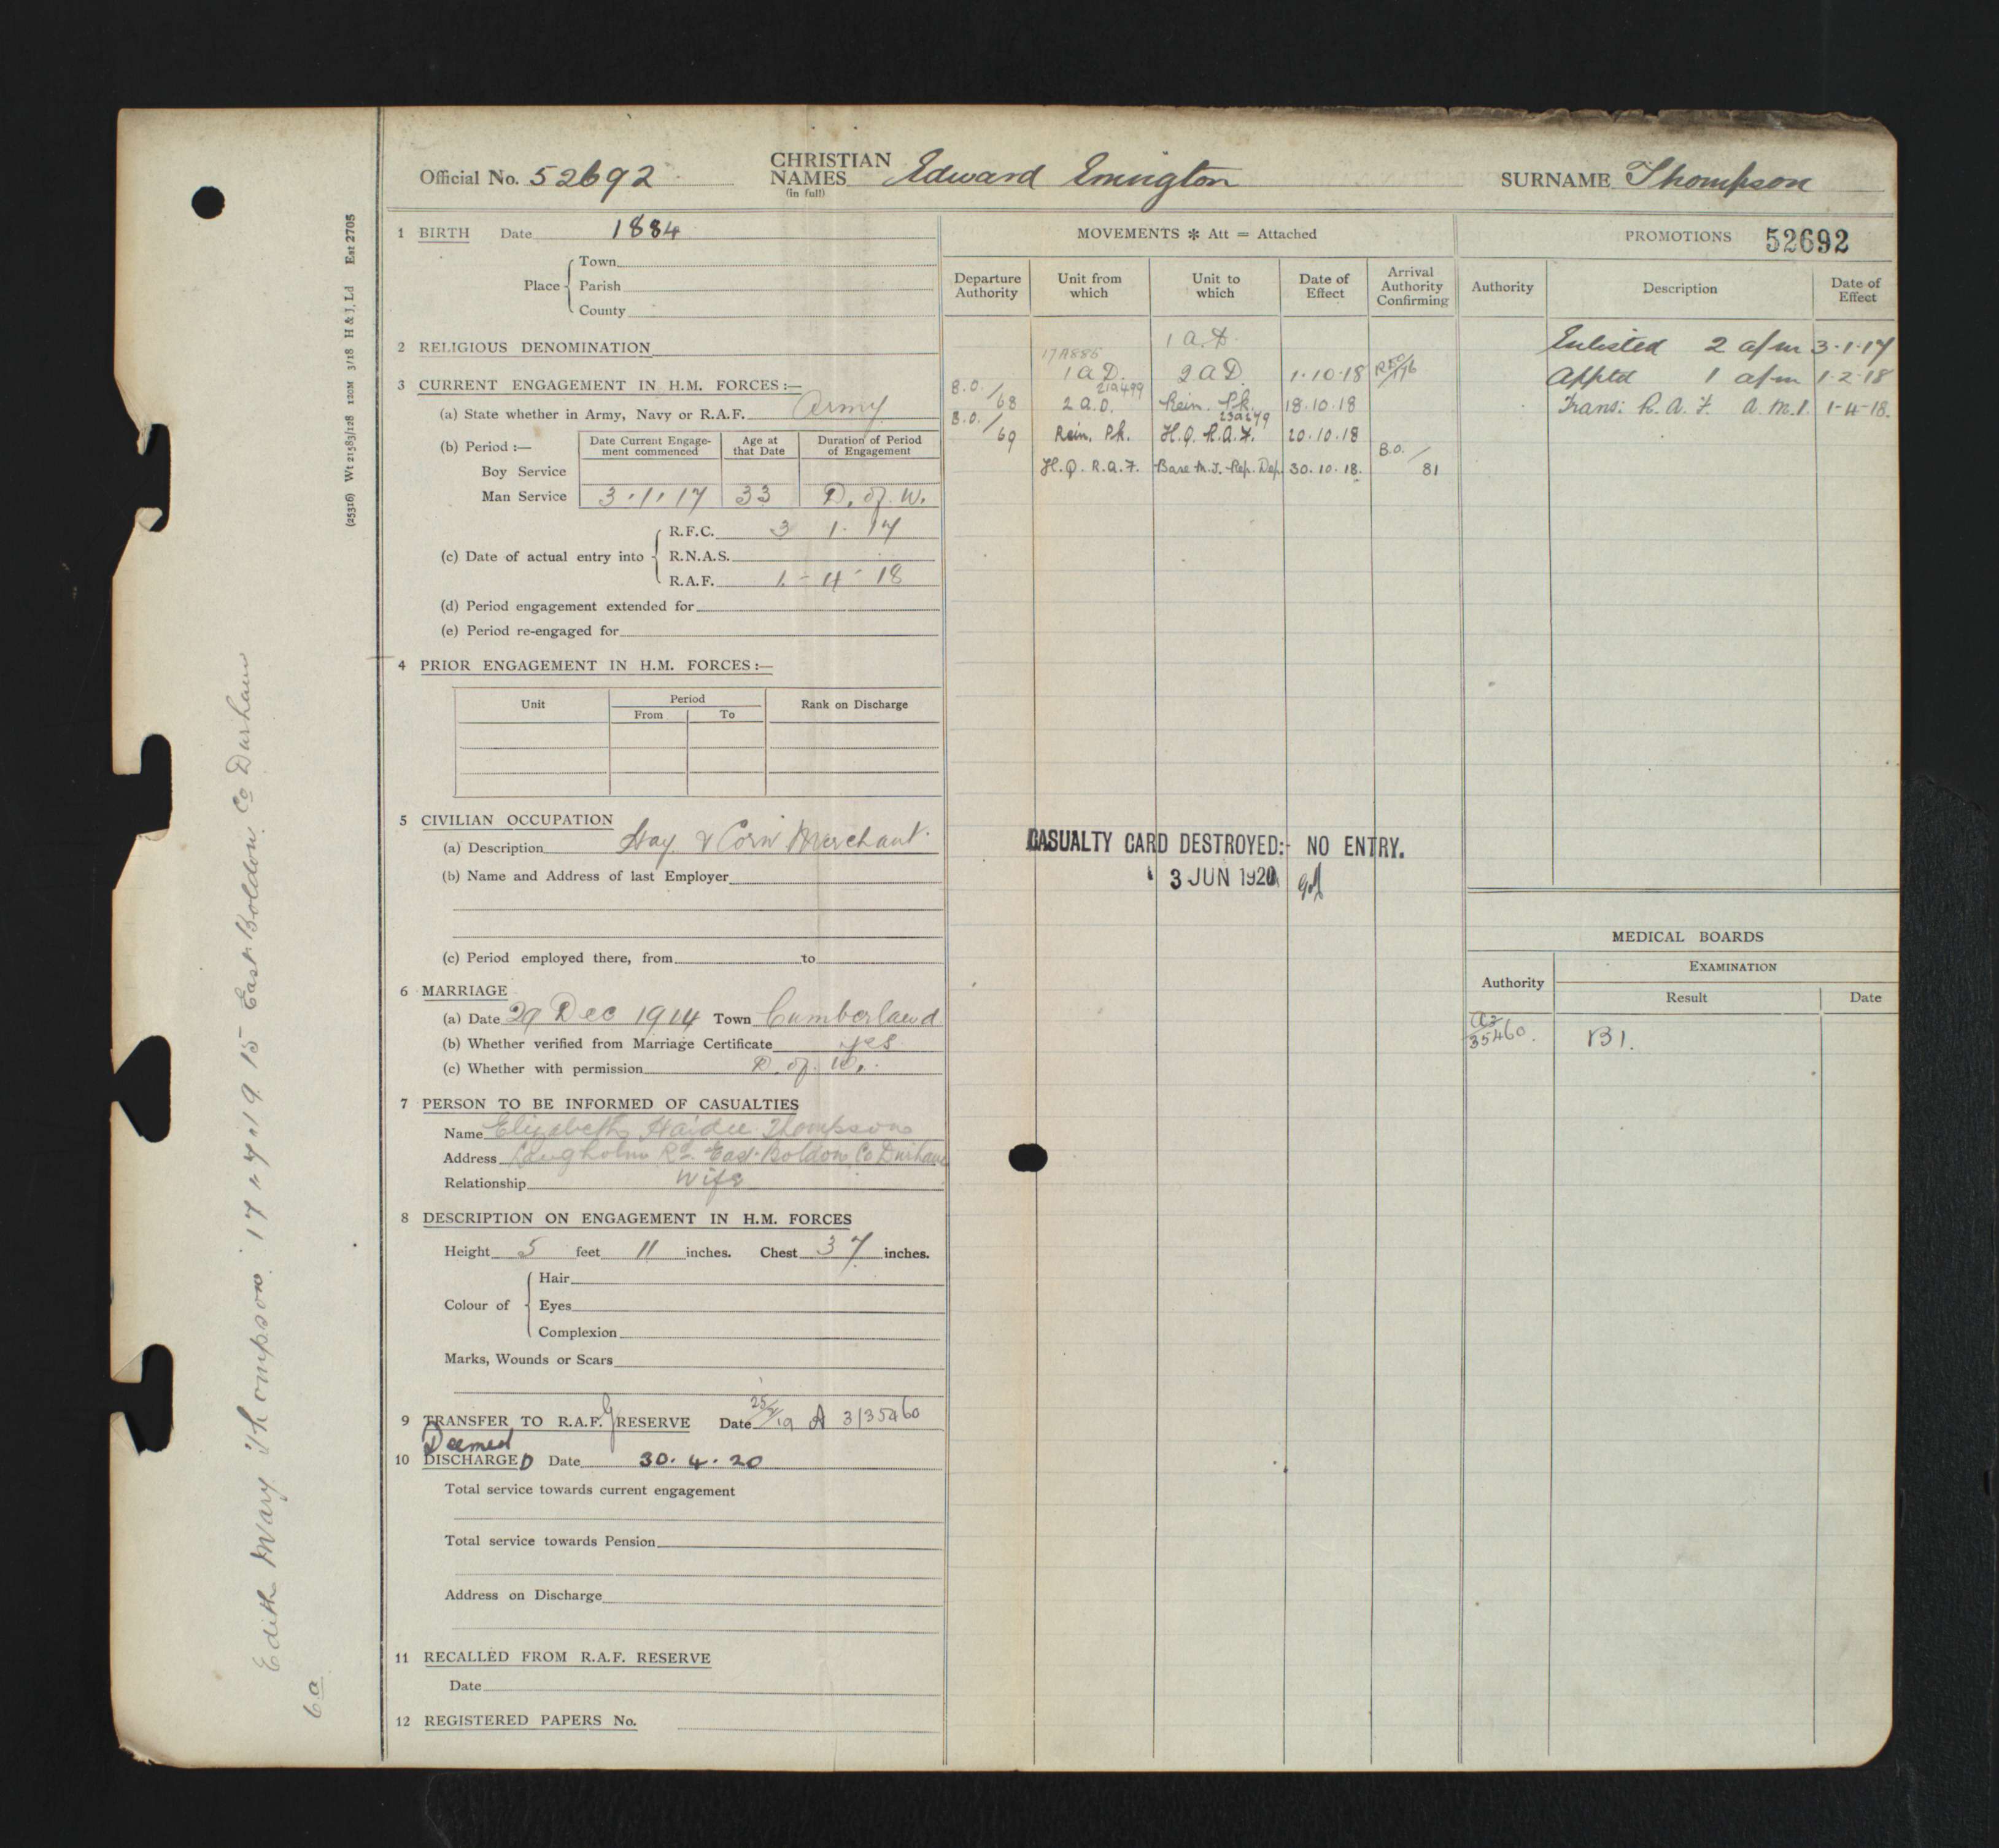 Official No. 52692 CHRISTIAN NAMES (in full) Edward Emington SURNAME Thompson
1 BIRTH Date 1884
Place { Town
Parish
County
2 RELIGIOUS DENOMINATION
3 CURRENT ENGAGEMENT IN H.M. FORCES :—
(a) State whether in Army, Navy or R.A.F. Army
(b) Period :— Date Current Engagement commenced Age at that Date Duration of Period of Engagement
Boy Service
Man Service 3.1.17 33 D. of W.
(c) Date of actual entry into { R.F.C. 3 1. 17
R.N.A.S.
R.A.F. 1 - 4 - 18
(d) Period engagement extended for
(e) Period re-engaged for
4 PRIOR ENGAGEMENT IN H.M. FORCES :—
Unit Period Rank on Discharge
From To
5 CIVILIAN OCCUPATION
(a) Description Hay & Corn Merchant
(b) Name and Address of last Employer
(c) Period employed there, from to
6 MARRIAGE
(a) Date 29 Dec 1914 Town Cumberland
(b) Whether verified from Marriage Certificate yes
(c) Whether with permission D. of W.
7 PERSON TO BE INFORMED OF CASUALTIES
Name Elizabeth Haidee Thompson
Address Langholm Rd. East Boldon Co Durham
Relationship Wife
8 DESCRIPTION ON ENGAGEMENT IN H.M. FORCES
Height 5 feet 11 inches. Chest 37 inches.
Colour of { Hair
Eyes
Complexion
Marks, Wounds or Scars
9 TRANSFER TO R.A.F. G RESERVE Date A 3/35460
Deemed
10 DISCHARGED Date 30.4.20
Total service towards current engagement
Total service towards Pension
Address on Discharge
11 RECALLED FROM R.A.F. RESERVE
Date
12 REGISTERED PAPERS No.
MOVEMENTS * Att = Attached
Departure Authority Unit from which Unit to which Date of Effect Arrival Authority Confirming
1 A.D.
17A886
1 A D. 2 A D. 1.10.18
21A499
B.O./68 2 A.D. Rein. Pk. 18.10.18
B.O./69 Rein. Pk. H.Q. R.A.F. 20.10.18
H.Q. R.A.F. Base M.T. Rep. Dep. 30.10.18. B.O./81
CASUALTY CARD DESTROYED:- NO ENTRY.
3 JUN 1920
PROMOTIONS 52692
Authority Description Date of Effect
Enlisted 2 a/m 3.1.17
Apptd 1 a/m 1.2.18
Trans: R.A.F. A.M.1. 1-4-18.
MEDICAL BOARDS
Authority EXAMINATION
Result Date
A3/35460. B1.
(25316) Wt 21583/128 120M 3/18 H & J, Ld Est 2705
6a Edith Mary Thompson 17 " 7 " 19 15 East Boldon Co Durham